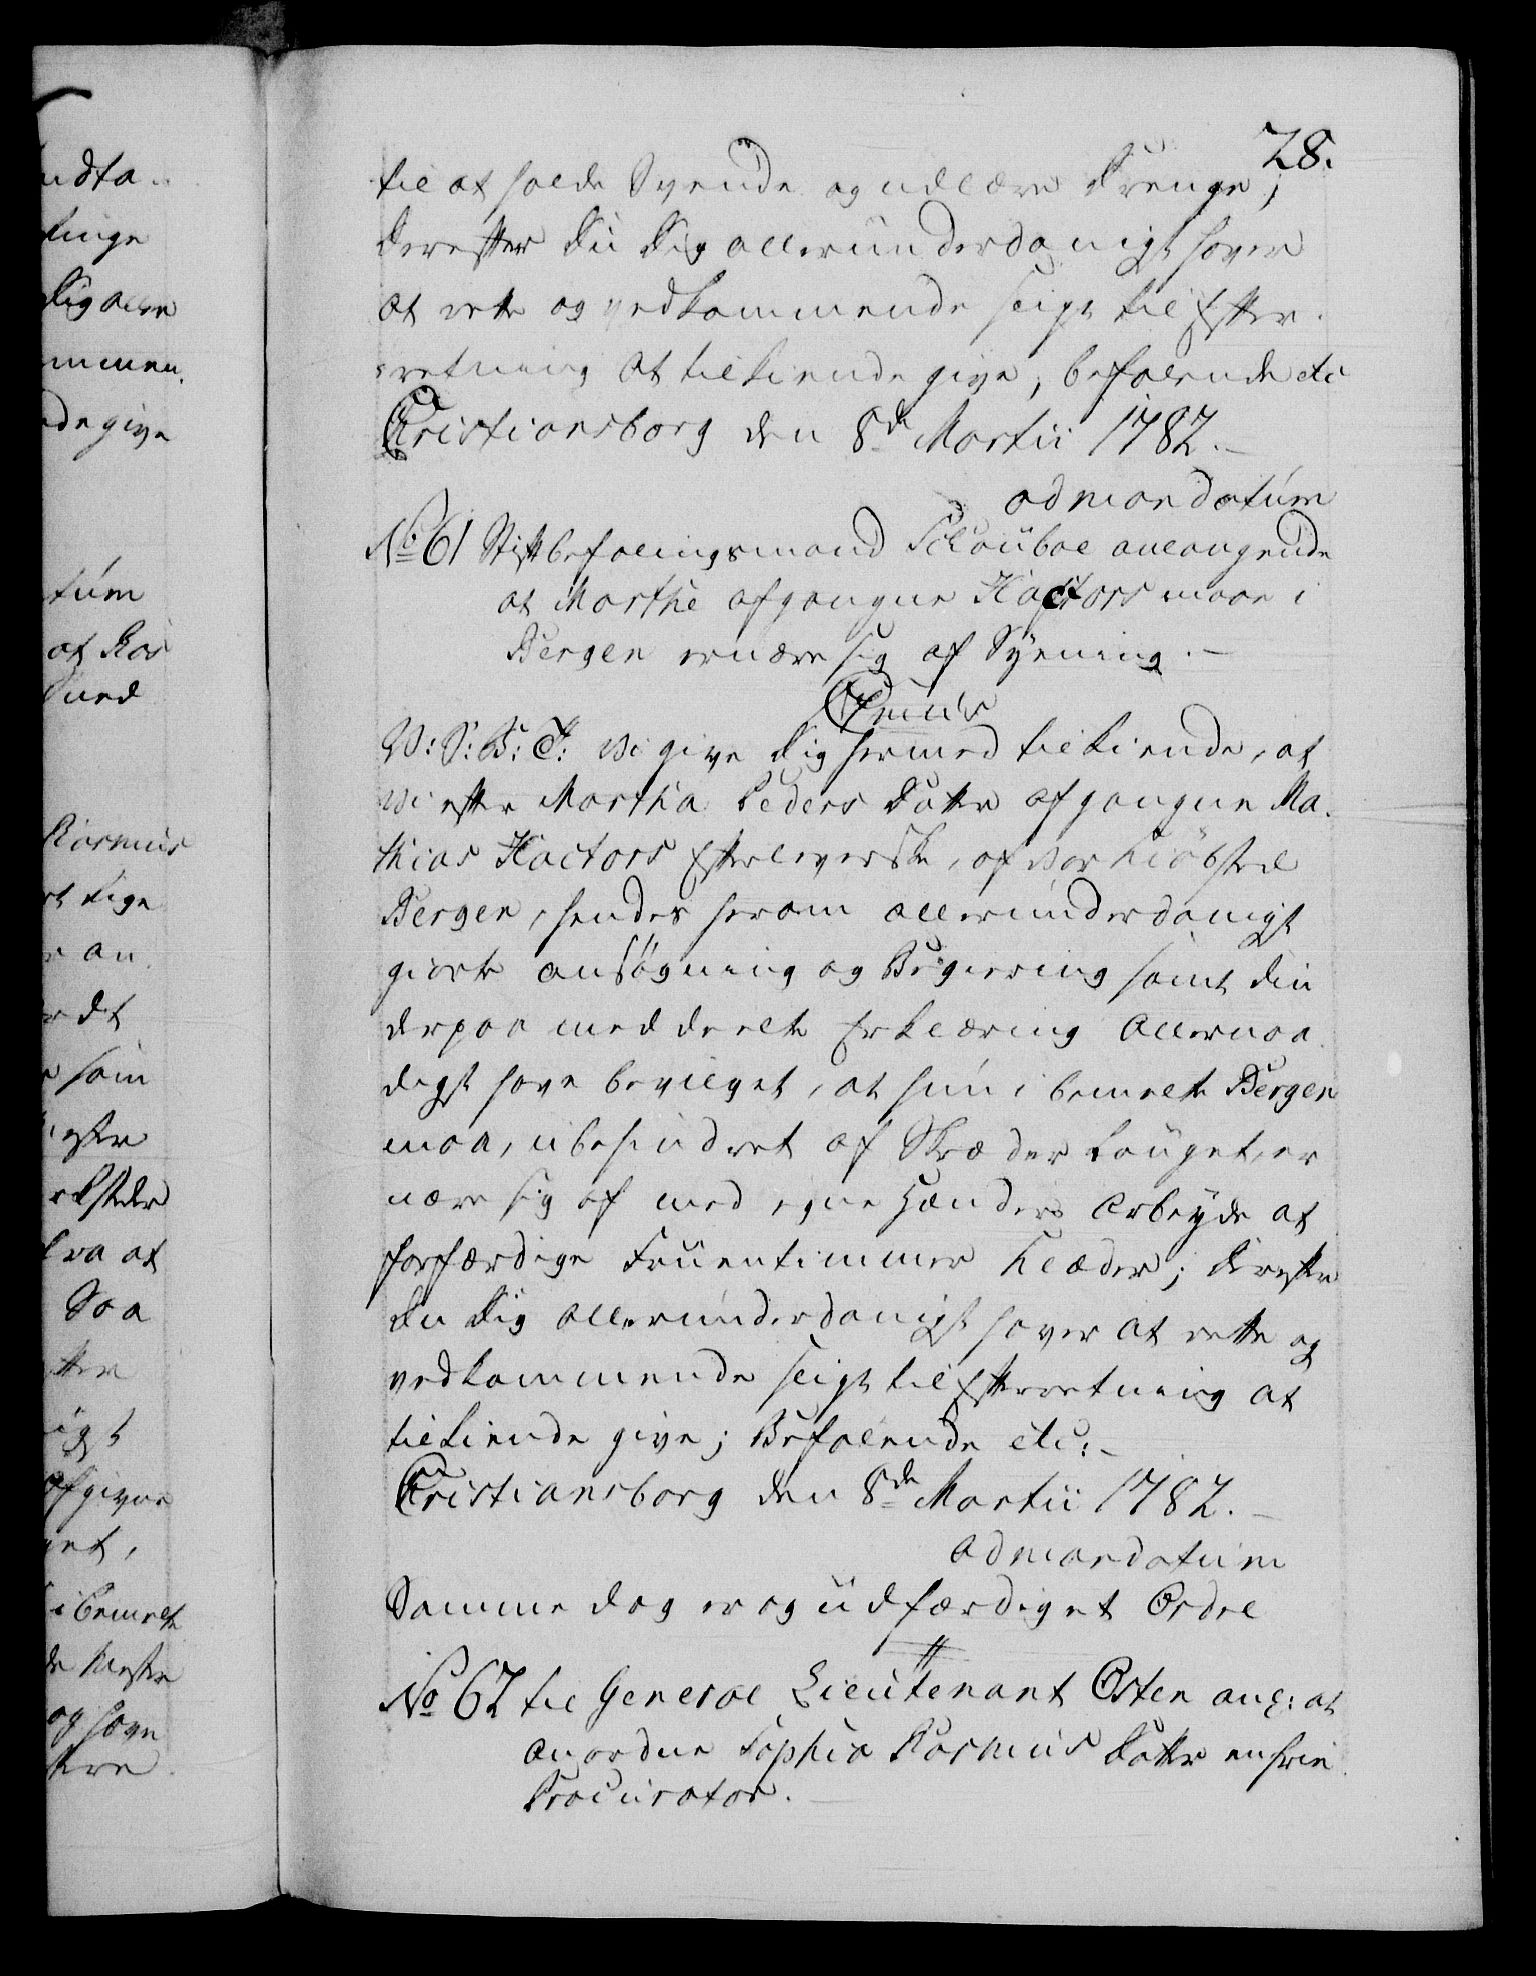 28.
til at holde Svende og udlære Drenge;
derefter Du Dig allerunderdanigst haver
at rette og vedkommende sligt til Efter-
retning at tilkiende give, befalende etc
Christiansborg den 8de Martii 1782.
ad mandatum
No 61 Stiftbefalingsmand Schouboe anlangende
at Marthe afgangne Hactors maae i
Bergen ernære sig af Syening.
V: S: B: T: Vi give Dig hermed tilkiende, at
vi efter Martha Peders Datter afgangne Ma-
thias Hactors Efterleverske, af vor Kiöbsted
Bergen, hendes herom allerunderdanigst
giorte ansögning og Begiering samt din
derpaa meddeelte Erklæring Allernaa-
digst have bevilget, at hun i bemelte Bergen
maa, ubehindret af Skræder Lauget, er-
nære sig af med egne Hænders Arbeyde at
forfærdige Fruentimmer Klæder; derefter
du Dig allerunderdanigst haver at rette og
vedkommende sligt til Efterretning at
tilkiende give; Befalende etc:
Christiansborg den 8de Martii 1782.
ad mandatum
Samme dag er og udfærdiget Ordre
No 62 til General Lieutenant Osten ang: at
anordne Sophia Rasmus Datter en frie
Procurator.
udta
linge
Dig aller
mmen
de give
tum
at Ras
Rasmus
rt lige
an
dt
som
efter
Saa
igst
afgivne
et,
i bemelte
og have